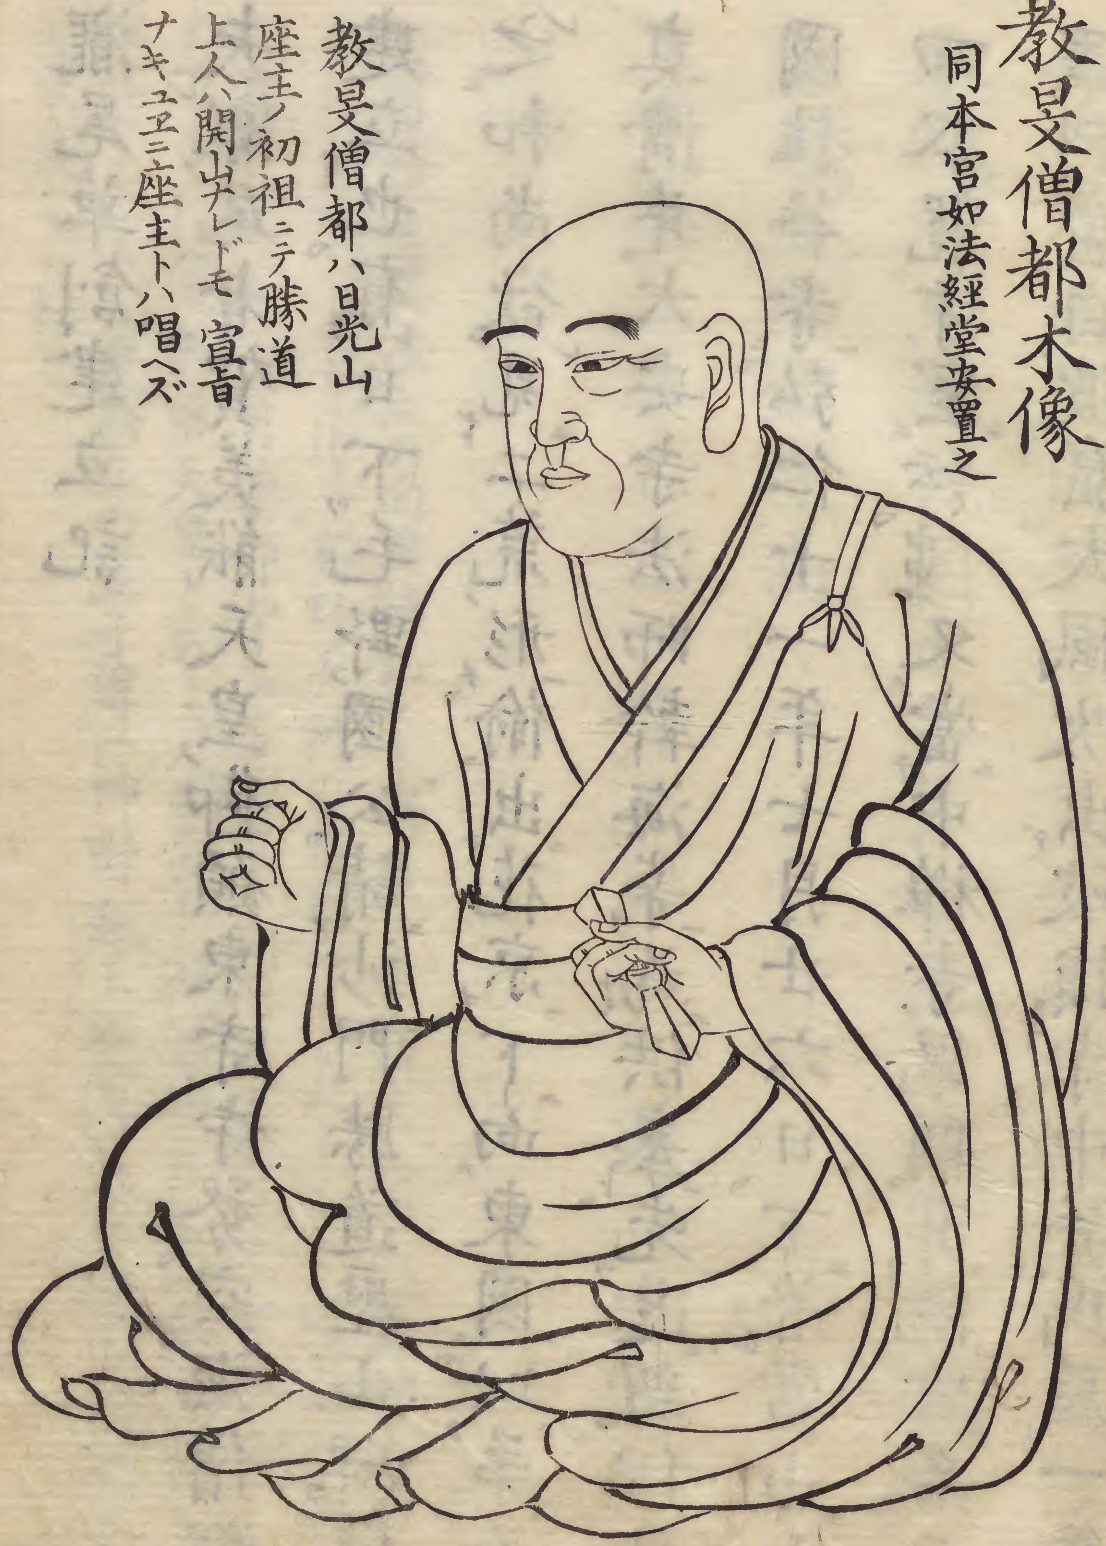 教旻僧都木像
同本宮如法經堂安置之
教旻僧都ハ日光山
座主ノ初祖ニテ勝道
上人ハ開山ナレドモ宣旨
ナキユヱニ座主トハ唱ヘズ